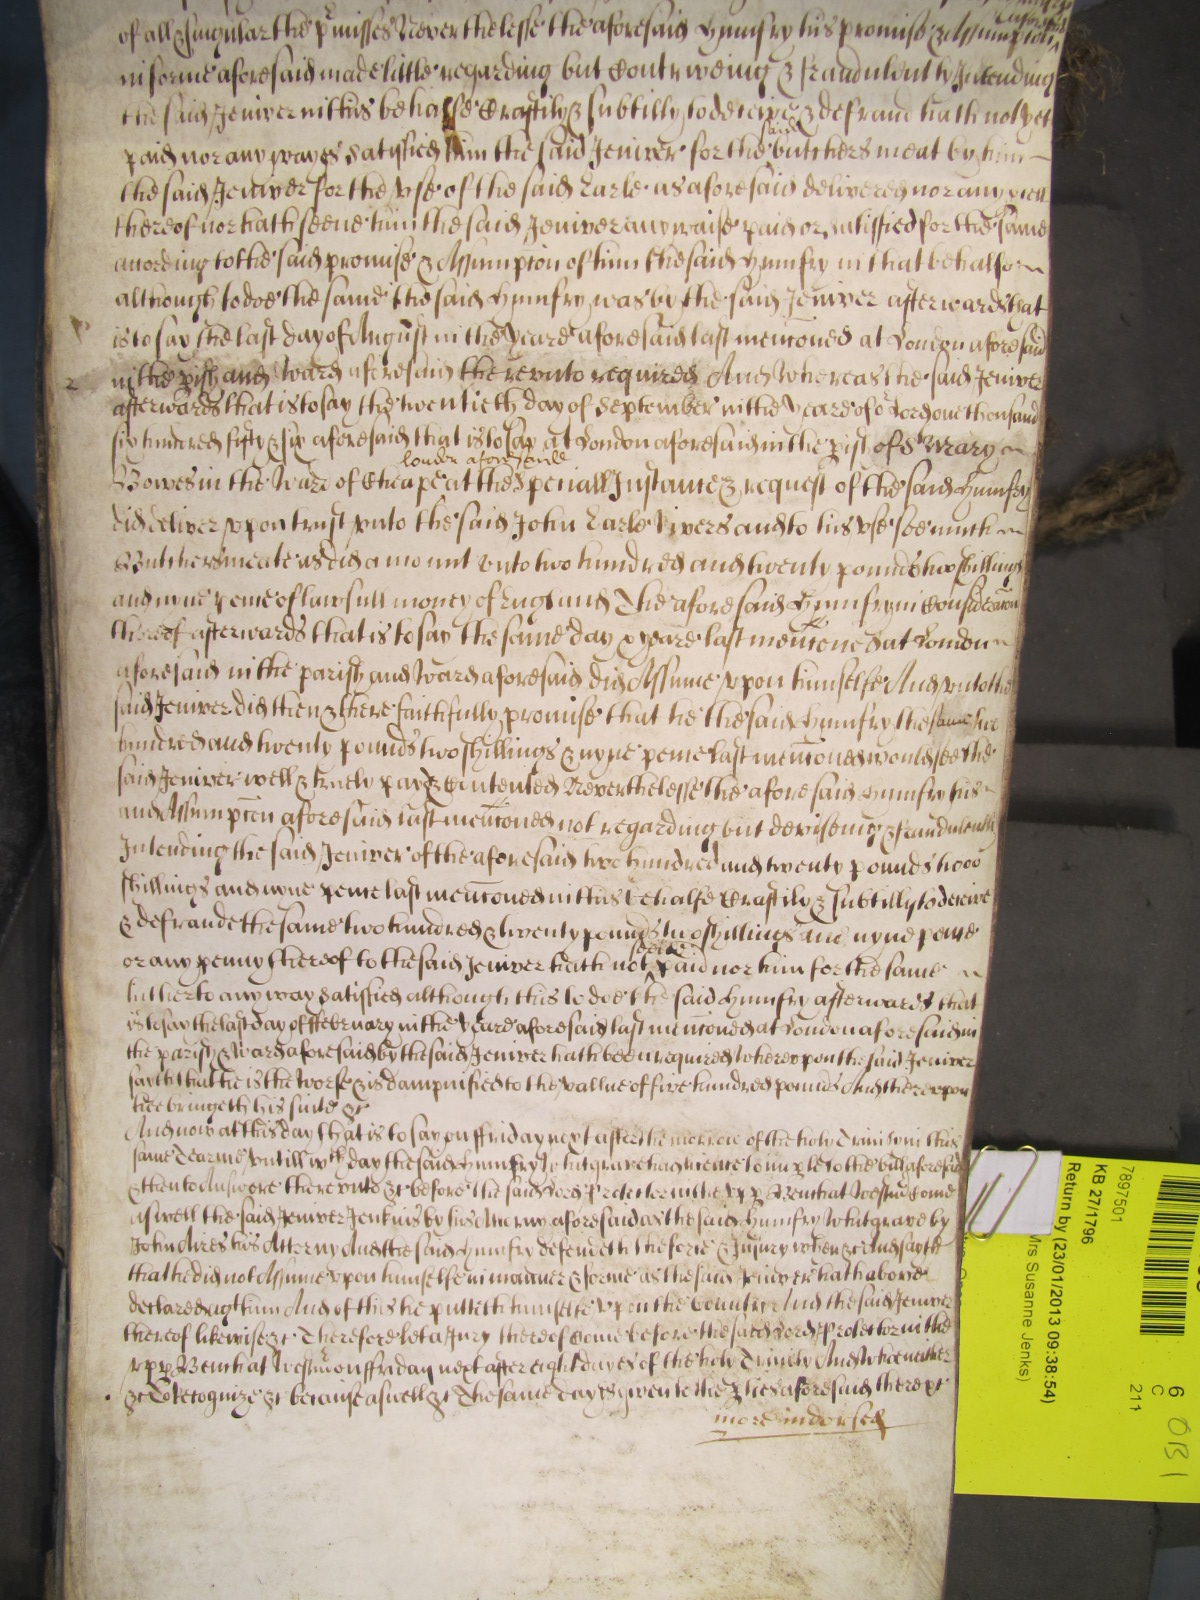 of all & singular the p'misses Neverthelesse the aforesaid Humfry his promise & Assumption
in forme aforesaid made little regarding but Contriveing & fraudulently Intending
the said Jeniver in this behalfe Craftily & subtilly to deceive & defraud hath not yet
paid nor any wayes satisfied him the said Jeniver for the said butchers meat by him
the said Jeniver for the use of the said Earle as aforesaid delivered nor any
thereof nor hath he him the said Jeniver any waise paid or satisfied for the same
according to the said promise & Assumpcon of him the said Humfry in that behalfe
although to doe the same the said Humfry was by the said Jeniver afterwards that
is to say the last day of August in the yeare aforesaid last mencioned at London aforesaid
2 in the pish and Ward aforesaid thereunto required And whereas the said Jeniver
afterwards that is to say the twentieth day of September in the yeare of o' Lord one thousand
six hundred fifty & six aforesaid that is to say at London aforesaid in the pish of St Mary
Bowes in the Ward of Cheape London aforesaid at the Speciall Instance & request of the said Humfry
did deliver upon trust unto the said John Earle Rivers and to his use soe much
Butchers meate as did amount unto two hundred and twenty pounds two shillings
and nyne pence of lawfull money of England The aforesaid Humfry in Consideracon
thereof afterwards that is to say the same day & yeare last mencioned at London
aforesaid in the parish and Ward aforesaid did Assume upon himselfe And unto the
said Jeniver did then & there faithfully promise that he the said Humfry the same two
hundred and twenty pounds two shillings & nyne pence last mencioned would the
said Jeniver well & truely pay & Content Neverthelesse the aforesaid Humfry his
and Assumpcon aforesaid last mencioned not regarding but deviseing & fraudulently
Intending the said Jeniver of the aforesaid two hundred and twenty pounds twoo
shillings and nyne pence last mencioned in this behalfe Craftily & subtilly to deceive
& defraude the same two hundred & twenty pounds two shillings and nyne pence
or any penny thereof to the said Jeniver hath not paid nor him for the same
hitherto any way satisfied although this to doe the said Humfry afterwards that
is to say the last day of ffebruary in the yeare aforesaid last mencioned at London aforesaid in
the parish & Ward aforesaid by the said Jeniver hath been required Whereupon the said Jeniver
sayth that he is the worse & is dampnified to the vallue of five hundred pounds And thereupon
hee bringeth his suite &c
And now at this day that is to say on ffriday next after the morrow of the holy Trinity in this
same Tearme untill wch day the said Humfry Whitgrave had licence to imple to the bill aforesaid
& then to Answere thereunto &c before the said Lord Protector in the upp Bench at Westm Come
aswell the said Jeniver Jenkins by his Attorny aforesaid as the said Humfry Whitgrave by
John Aires his Attorny And the said Humfry defendeth the force & Injury when &c And sayth
that he did not Assume upon himselfe in manner & forme as the said Jeniver hath above
declared agt him And of this he putteth himselfe upon the Country And the said Jeniver
thereof likewise &c Therefore let a Jury thereof Come before the said Lord Protector in the
upp Bench at Westm on ffriday next after eight dayes of the holy Trinity And who neither
&c To Recognize &c because aswell &c The same day is given to the pties aforesaid there &c
more indorsed
7897501
KB 27/1796
Return by (23/01/2013 09:38:54)
Mrs Susanne Jenks)
6
C
211
OBI